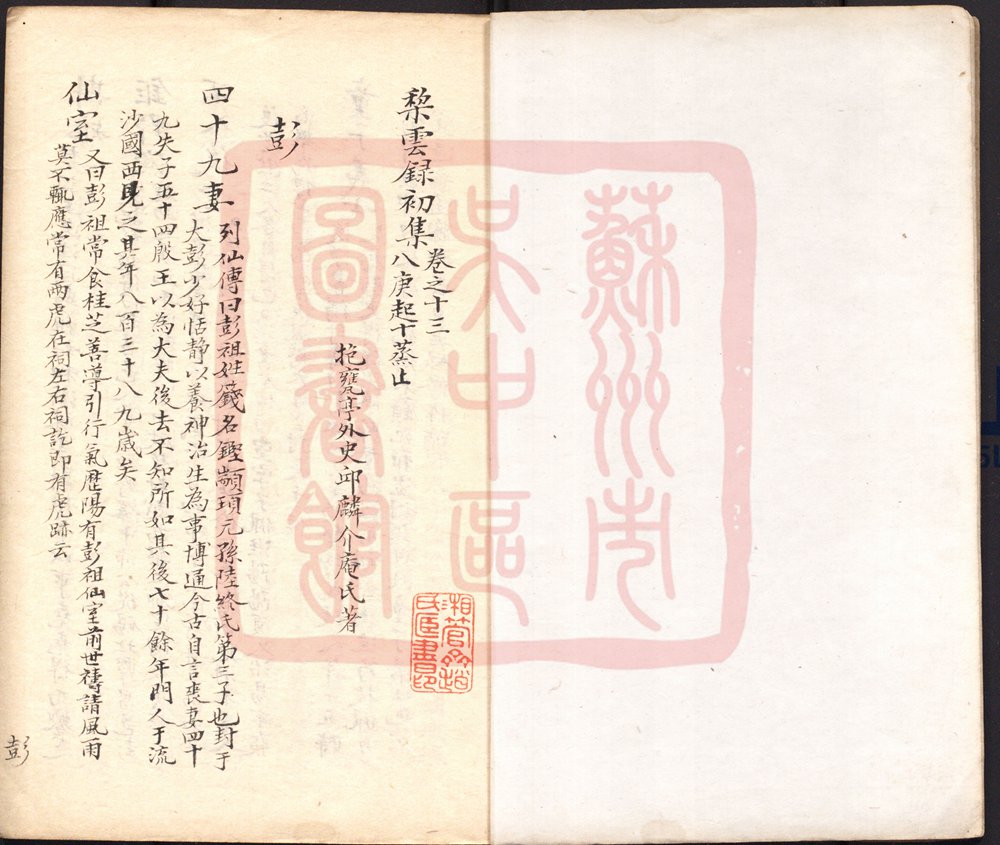 棃雲録初集卷之十三
八庚起十蒸止
抱甕亭外史邱麟介庵氏著
彭
四十九妻
列仙傳曰彭祖姓籛名鏗顓頊元孫陸終氏第三子也封于
大彭少好恬静以養神治生為事博通今古自言喪妻四十
九失子五十四殷王以為大夫後去不知所如其後七十餘年門人于流
沙國西見之其年八百三十八九歲矣
仙室
又曰彭祖常食桂芝善導引行氣歷陽有彭祖仙室前世禱請風雨
莫不輒應常有兩虎在祠左右祠訖即有虎跡云
彭
蘇州市
吳中區
圖書館